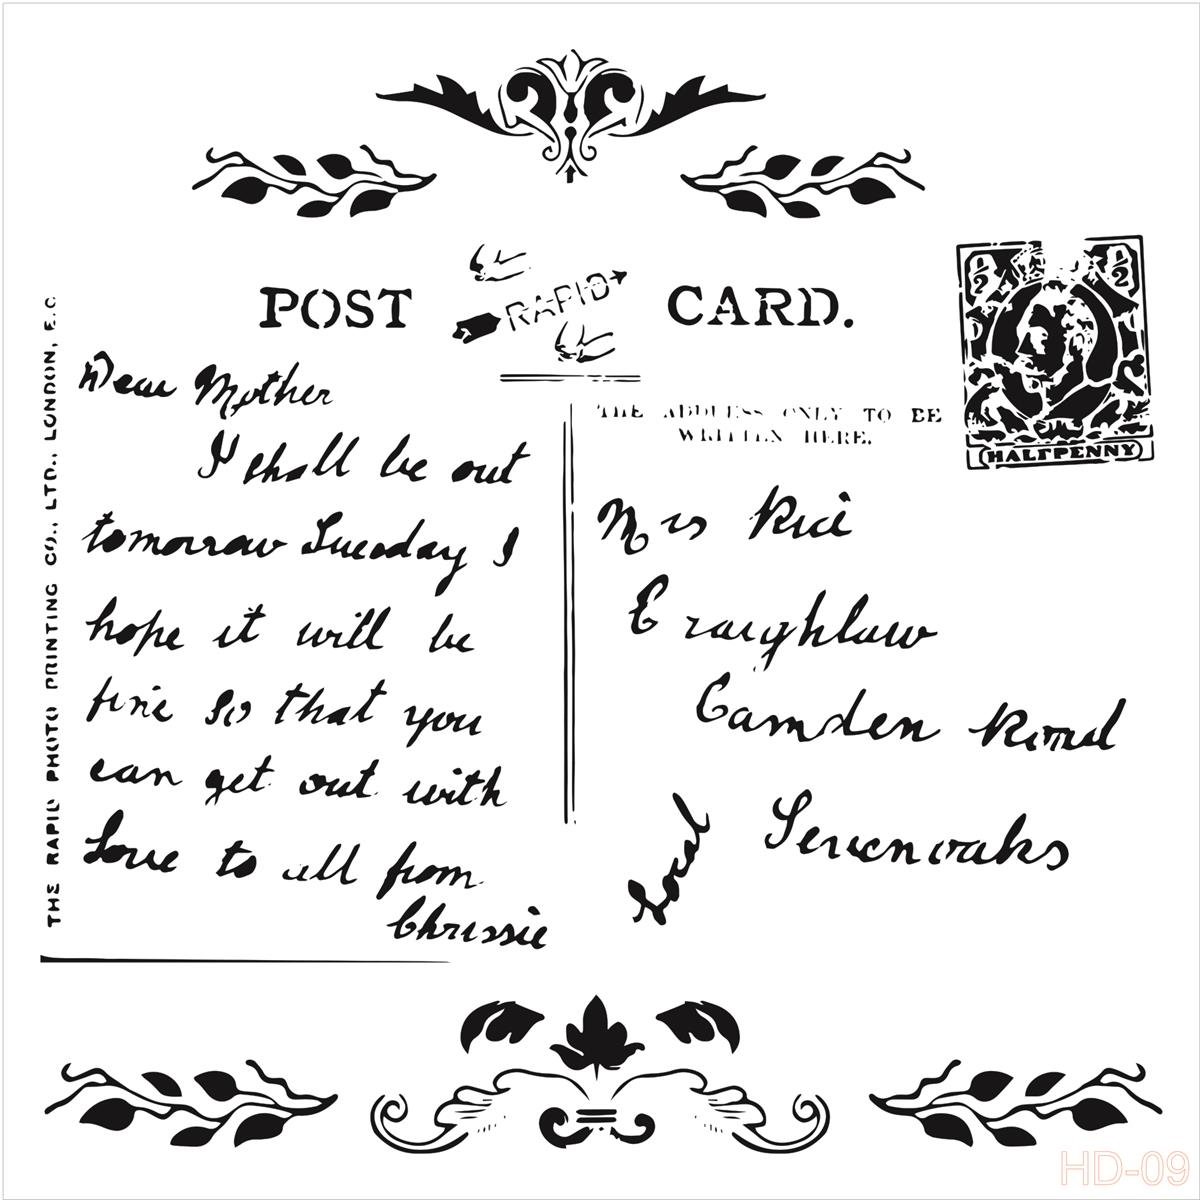 POST RAPID CARD.
1/2 1/2
HALFPENNY
THE ADDRESS ONLY TO BE
WRITTEN HERE.
THE RAPID PHOTO PRINTING CO., LTD., LONDON, E.C.
Dear Mother
I shall be out
tomorrow Tuesday I
hope it will be
fine so that you
can get out with
Love to all from
Chrissie
Mrs Rice
Craighlaw
Camden Road
Sevenoaks
Local
HD-09